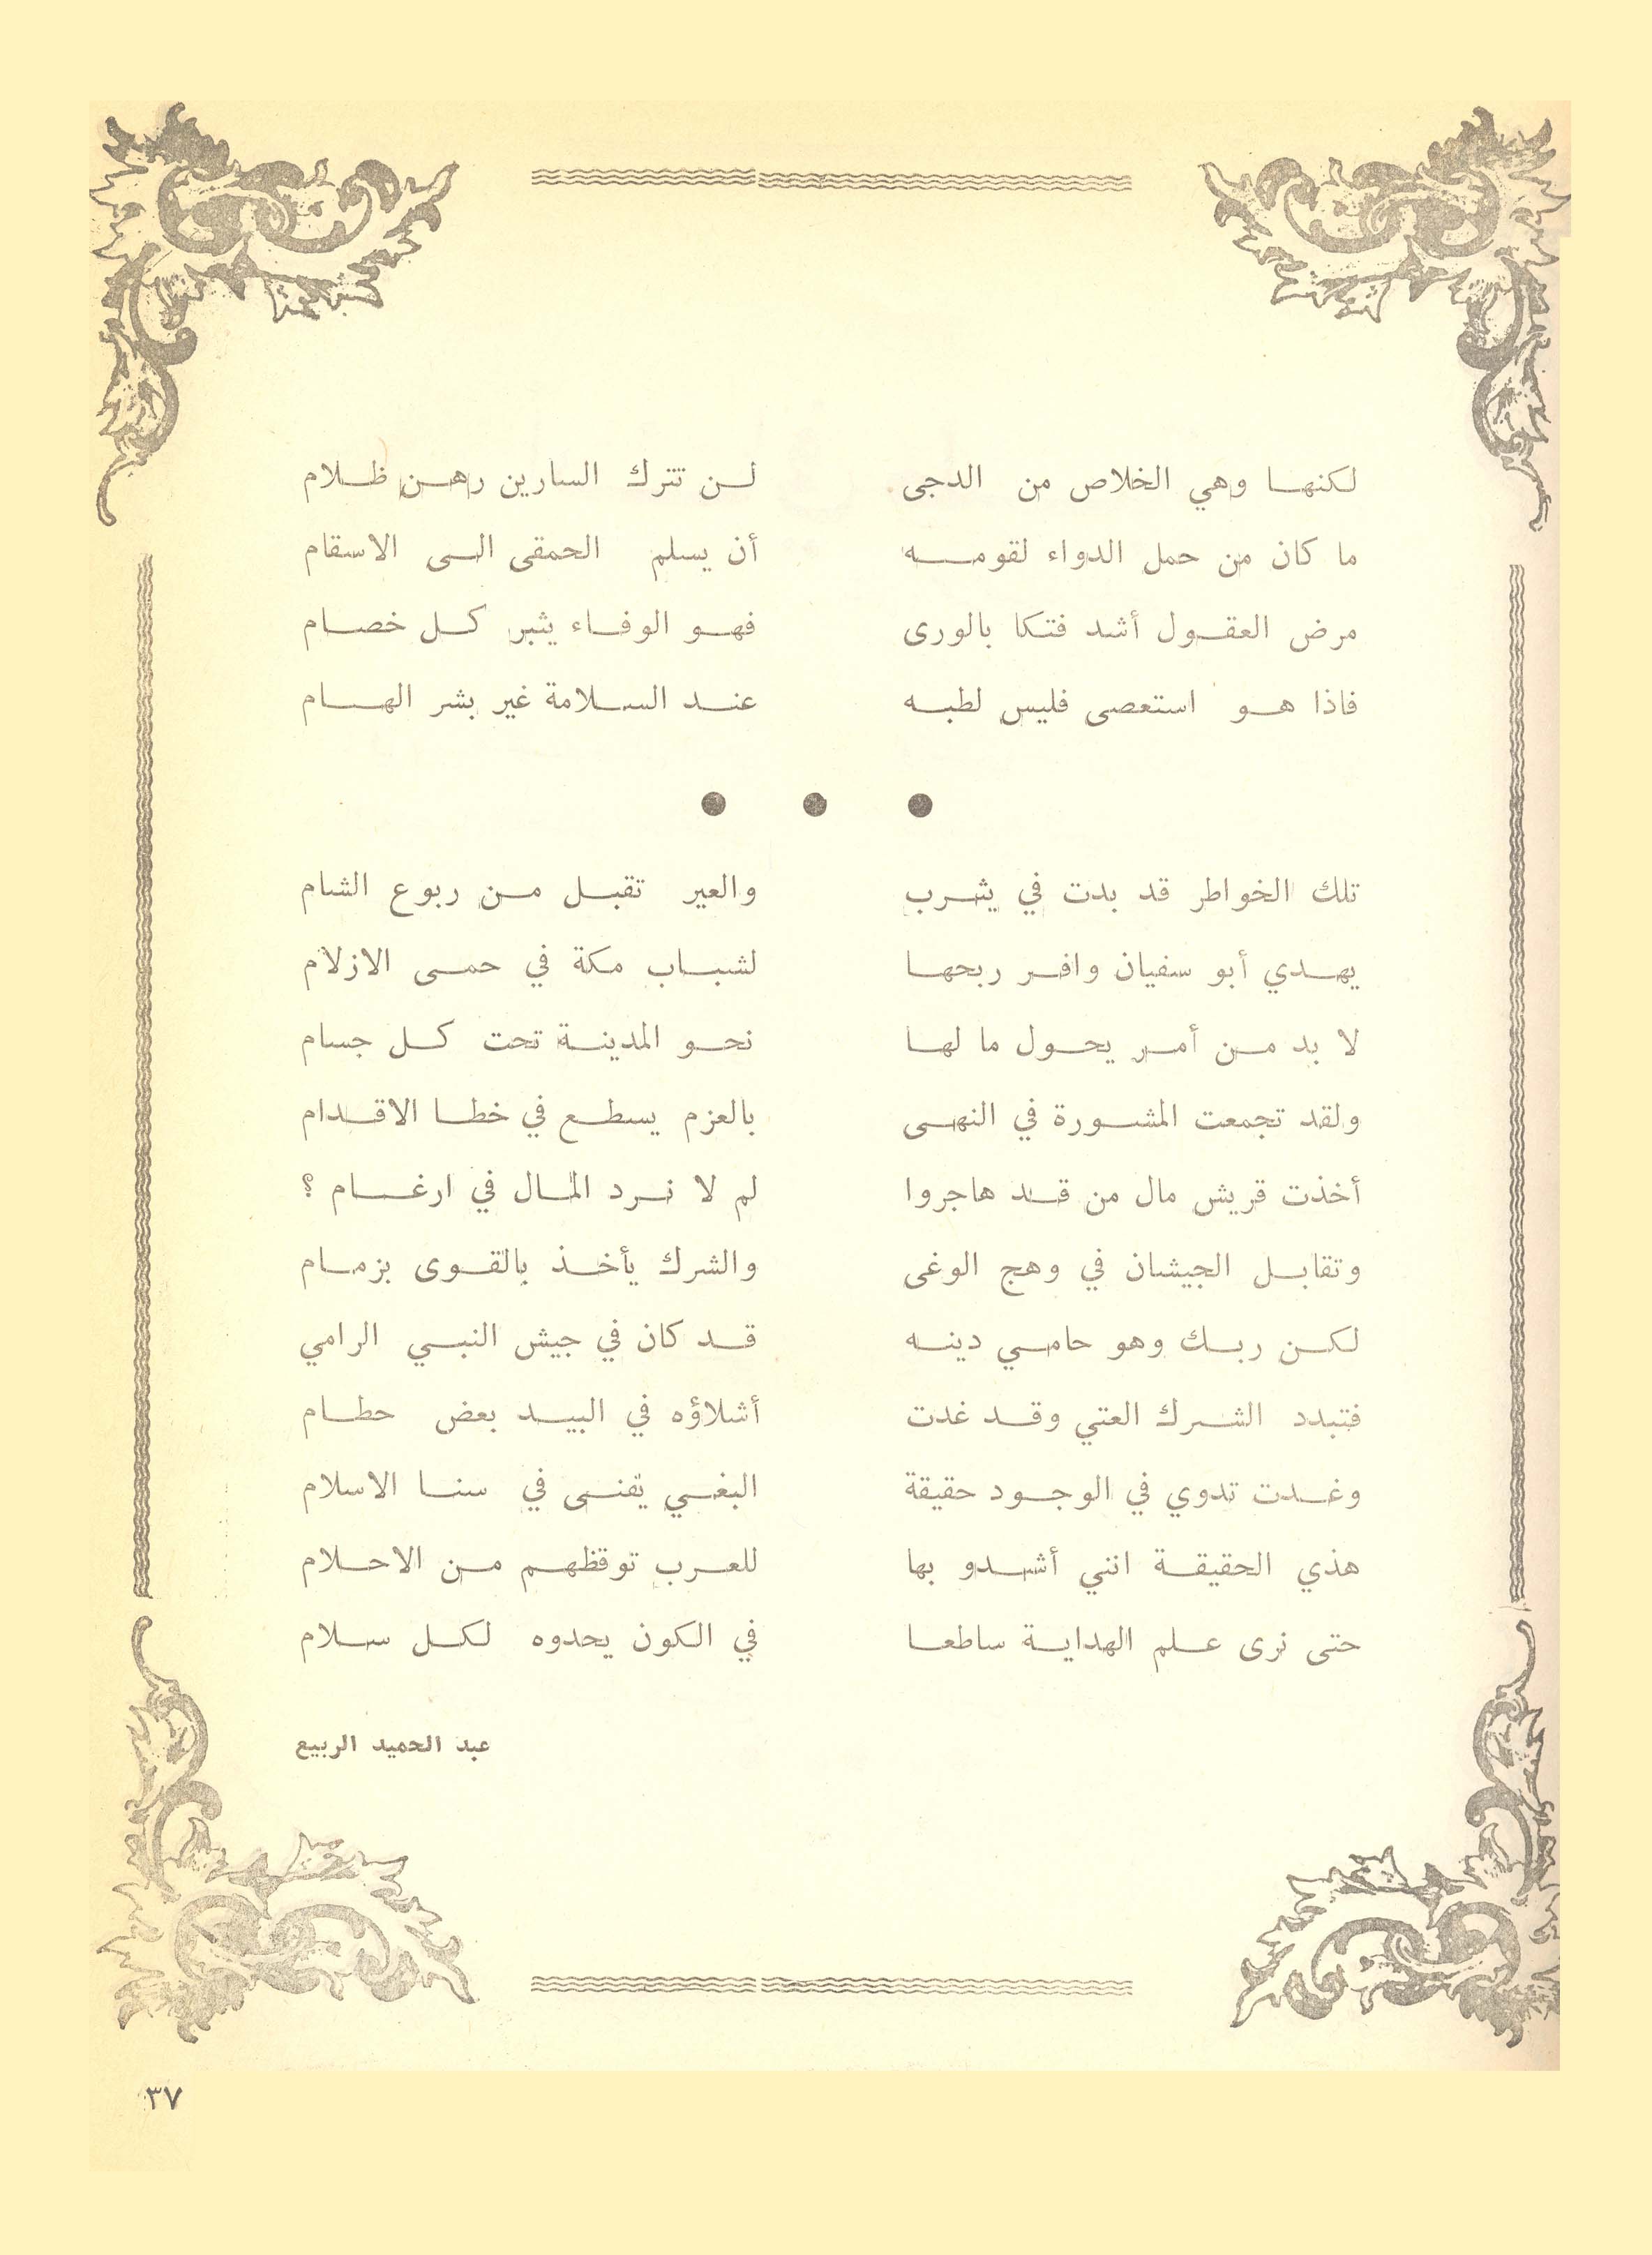 لكنها وهي الخلاص من الدجى لن تترك السارين رهن ظلام
ما كان من حمل الدواء لقومه أن يسلم الحمقى الى الاسقام
مرض العقول أشد فتكا بالورى فهو الوفاء يثير كل خصام
فاذا هو استعصى فليس لطبه عند السلامة غير بشر الهام
تلك الخواطر قد بدت في يثرب والعير تقبل من ربوع الشام
يهدي أبو سفيان وافر ربحها لشباب مكة في حمى الازلام
لا بد من أمر يحول ما لها نحو المدينة تحت كل جسام
ولقد تجمعت المشورة في النهى بالعزم يسطع في خطا الاقدام
أخذت قريش مال من قد هاجروا لم لا نرد المال في ارغام ؟
وتقابل الجيشان في وهج الوغى والشرك يأخذ بالقوى بزمام
لكن ربك وهو حامي دينه قد كان في جيش النبي الرامي
فتبدد الشرك العتي وقد غدت أشلاؤه في البيد بعض حطام
وغدت تدوي في الوجود حقيقة البغي يفنى في سنا الاسلام
هذي الحقيقة انني أشدو بها للعرب توقظهم من الاحلام
حتى نرى علم الهداية ساطعا في الكون يحدوه لكل سلام
عبد الحميد الربيع
٣٧